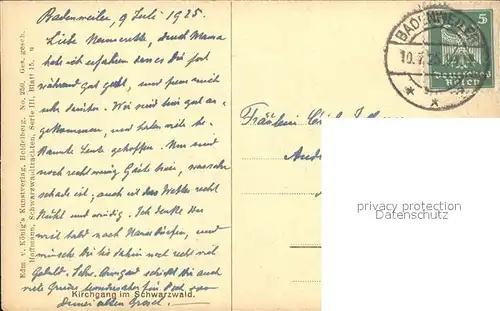 Badenweiler, 9 Juli 1925.
Liebe Nennerette, durch Mama
habe ich erfahren dass es Dir fort
während gut geht, und freue mich
sehr darüber. Wir sind hier gut an-
gekommen, und haben viele be-
kannte Leute getroffen. Nur sind
noch recht wenig Gäste hier, was sehr
schade ist; auch ist das Wetter recht
kühl und windig. Ich denke Du
wirst bald nach Hause dürfen, und
wünsche Dir bis dahin noch recht viel
Geduld. schickt Dir auch
viele Grüsse
Deiner alten
Kirchgang im Schwarzwald.
Edm. v. König's Kunstverlag, Heidelberg. No. 250. Ges. gesch.
Hoffmann, Schwarzwaldtrachten, Serie III, Blatt 15.
BADENWEILER
10.7.25
5
Deutsches
Reich
Fräulein
privacy protection
Datenschutz